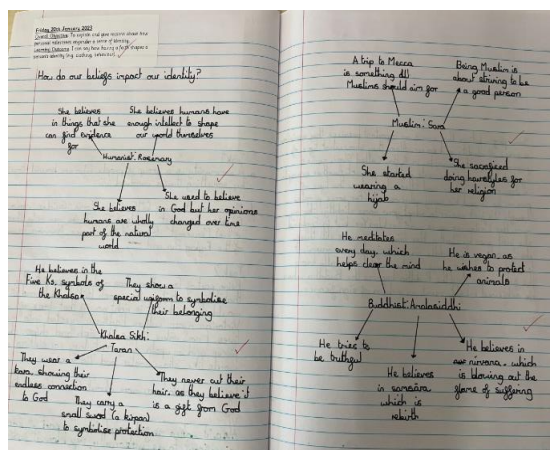 Friday 20th January 2023
Overall Objective: To explain and give reasons about how
personal adherence engenders a sense of identity
Learning Outcome: I can say how having a faith shapes a
person's identity (e.g. clothing, behaviour)
How do our beliefs impact our identity?
She believes
in things that she
can find evidence
for
She believes humans have
enough intellect to shape
our world themselves
Humanist: Rosemary
She believes
humans are wholly
part of the natural
world
She used to believe
in God but her opinions
changed over time
He believes in the
Five Ks, symbols of
the Khalsa
They show a
special uniform to symbolise
their belonging
Khalsa Sikh:
Taran
They wear a
kara, showing their
endless connection
to God
They carry a
small sword (a kirpan)
to symbolise protection
They never cut their
hair, as they believe it
is a gift from God
A trip to Mecca
is something all
Muslims should aim for
Being Muslim is
about striving to be
a good person
Muslim: Sara
She started
wearing a
hijab
She sacrificed
doing hairstyles for
her religion
He meditates
every day, which
helps clear the mind
He is vegan, as
he wishes to protect
animals
Buddhist: Analasiddhi
He tries to
be truthful
He believes
in samsara
which is
rebirth
He believes in
nirvana, which
is blowing out the
flame of suffering